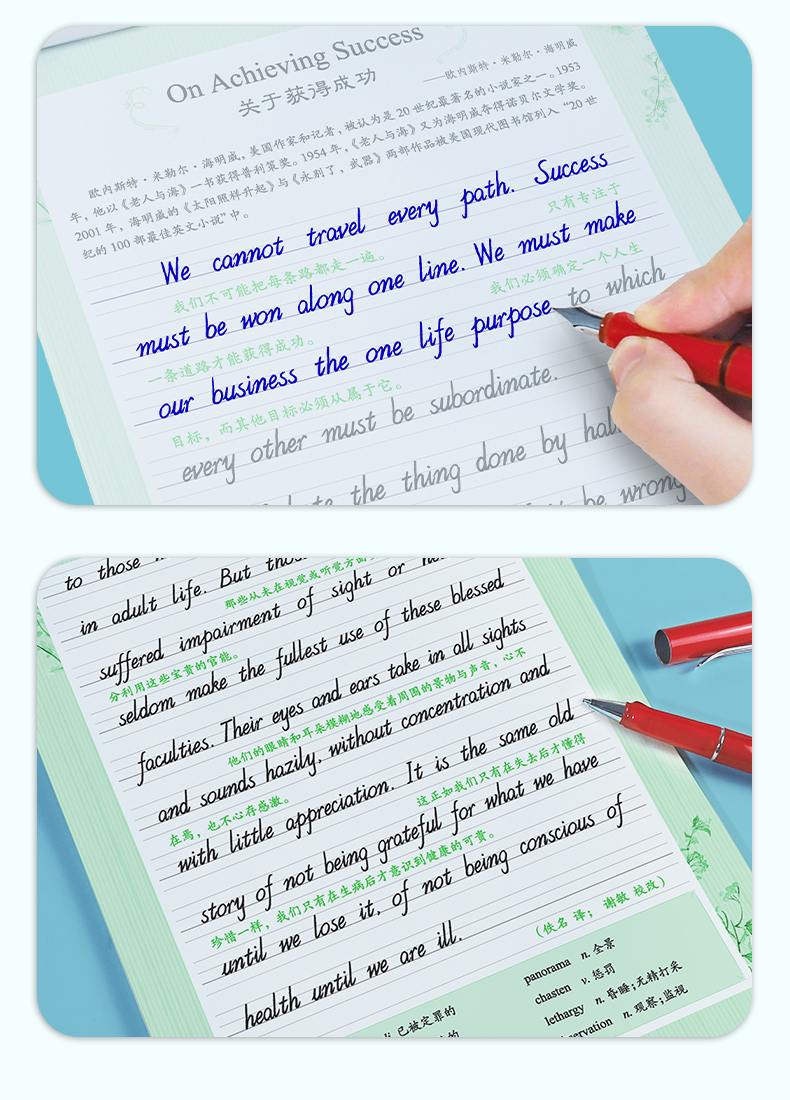 On Achieving Success
关于获得成功
——欧内斯特·米勒尔·海明威
欧内斯特·米勒尔·海明威，美国作家和记者，被认为是20世纪最著名的小说家之一。1953
年，他以《老人与海》一书获得普利策奖。1954年，《老人与海》又为海明威夺得诺贝尔文学奖。
2001年，海明威的《太阳照样升起》与《永别了，武器》两部作品被美国现代图书馆列入“20世
纪的100部最佳英文小说”中。
We cannot travel every path. Success
我们不可能把每条路都走一遍。 只有专注于
must be won along one line. We must make
一条道路才能获得成功。 我们必须确定一个人生
our business the one life purpose to which
目标，而其他目标必须从属于它。
every other must be subordinate.
the thing done by
be wrong
to those
in adult life. But
那些从未在视觉或听觉方面
suffered impairment of sight or
seldom make the fullest use of these blessed
分利用这些宝贵的官能。
faculties. Their eyes and ears take in all sights
他们的眼睛和耳朵模糊地感受着周围的景物与声音，心不
and sounds hazily, without concentration and
在焉，也不心存感激。
with little appreciation. It is the same old
这正如我们只有在失去后才懂得
story of not being grateful for what we have
珍惜一样，我们只有在生病后才意识到健康的可贵。
until we lose it, of not being conscious of
health until we are ill.
（佚名 译； 谢敏 校改）
已被定罪的
的
panorama n. 全景
chasten v. 惩罚
lethargy n. 昏睡；无精打采
n. 观察；监视